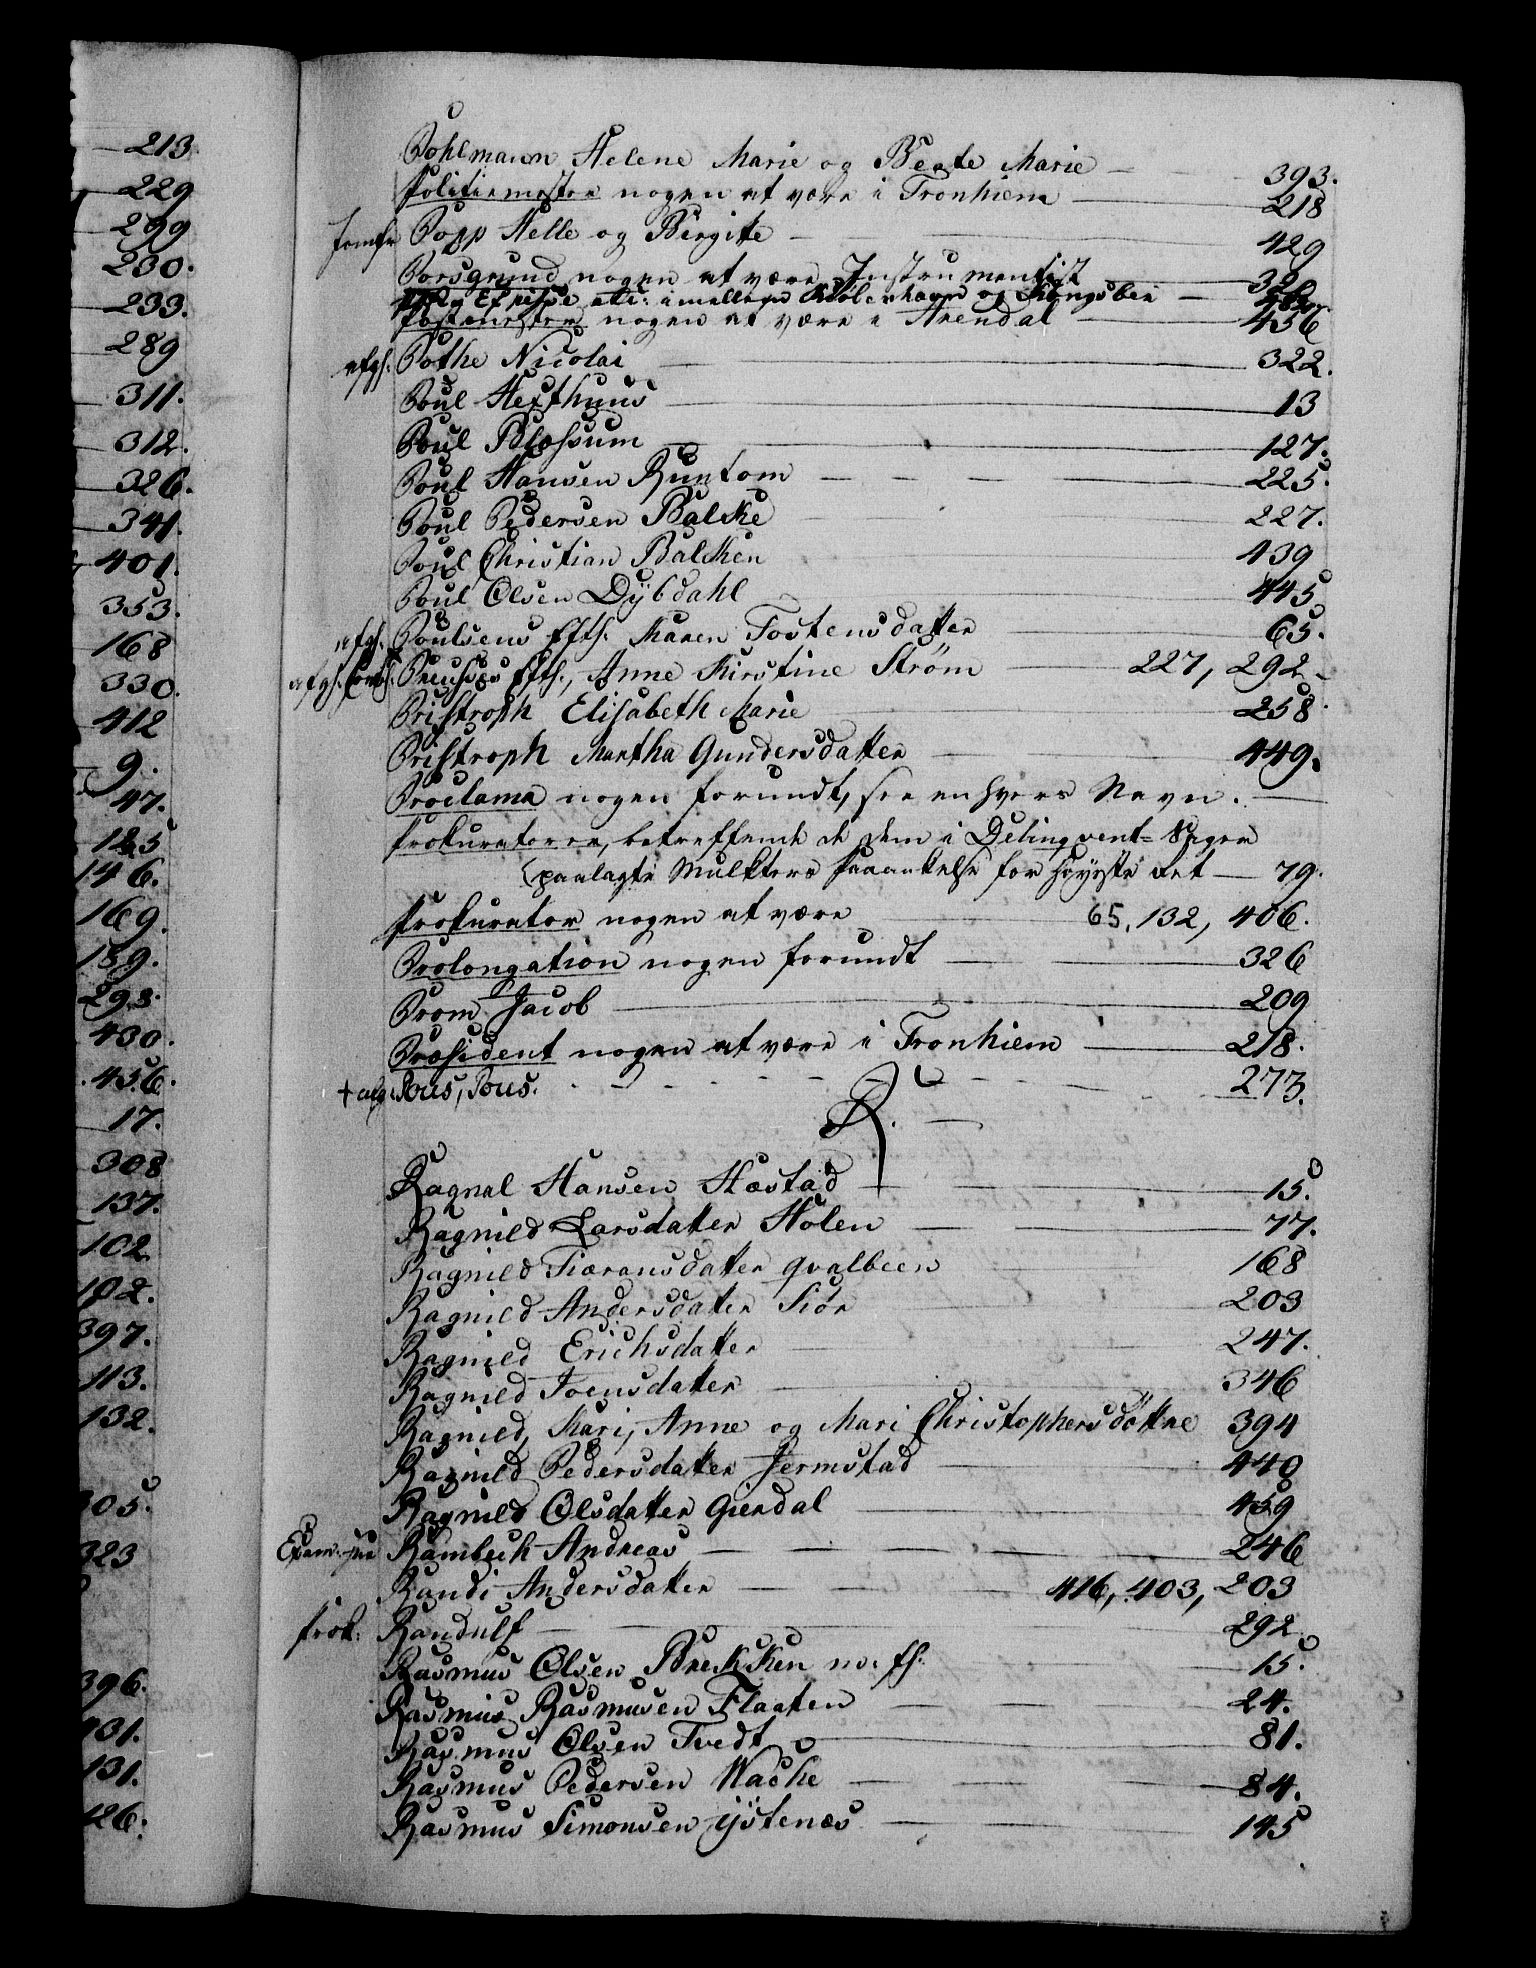 213.
229
299
230.
233.
289
311.
312.
326.
341.
401.
353.
168
330.
412
9.
47.
125
146.
169.
189.
298.
430.
456.
17.
308
137.
102
102.
397.
113.
132.
305.
323
396.
431.
131.
426.
Pohlmann Helene Marie og Beate Marie 393.
Politiemester nogen at være i Tronhiem 218
Jomfr Popp Helle og Birgite 429
Porsgrund nogen at være Instrumentist
imellem Kiøbenhavn og Kongsber
Postmester nogen at være i Arendal 456
afg: Pothe Nicolai 322.
Poul Hefthuus 13
Poul Blæssum 127.
Poul Hansen Runtom 225.
Poul Pedersen Balske 227.
Poul Christian Balchen 439
Poul Olsen Dybdahl 445
afg: Poulsens Efth: Maren Tostensdatter 65.
afg: Efth:, Anne Kirstine Strøm 227, 292
Pristroph Elisabeth Marie 258.
Pristroph Martha Gundersdatter 449.
Proclama nogen forundt, see enhvers Navn.
Prokuratorer, betreffende de dem i Delinqvent-Sager
paalagte Mulkters Paaankelse for Høyeste Ret 79.
Prokurator nogen at være 65, 132, 406.
Prolongation nogen forundt 326
Prom Jacob 209
Præsident nogen at være i Tronhiem 218.
Pous, Pous. 273.
R.
Ragnal Hansen Hæstad 15.
Ragnild Larsdatter Holen 77.
Ragnild Tiæransdatter Qvalbeen 168
Ragnild Andersdatter Siør 203
Ragnild Erichsdatter 247.
Ragnild Joensdatter 346
Ragnild, Kari, Anne og Mari Christophersdøttre 394
Ragnild Pedersdatter Jermstad 440
Ragnild Olsdatter Gierdal 459
Exam: Jur Rambech Andreas 246
Randi Andersdatter 416, 403, 203
Prok: Randulf 292
Rasmus Olsen Brekken m: fl: 15.
Rasmus Rasmusen Flaaten 24.
Rasmus Olsen Tvedt 81.
Rasmus Pedersen Wacke 84.
Rasmus Simonsen Ystenæs 145